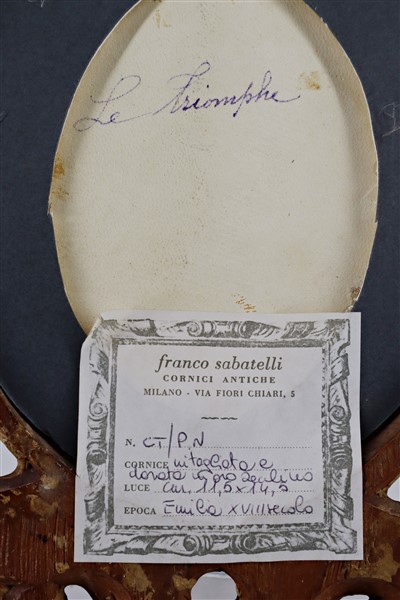 Le Triomphe
franco sabatelli
CORNICI ANTICHE
MILANO - VIA FIORI CHIARI, 5
N. CT/P.N
CORNICE intagliata e
dorata in oro zecchino
LUCE cm. 11,5 x 14,5
EPOCA Emilia XVIII secolo